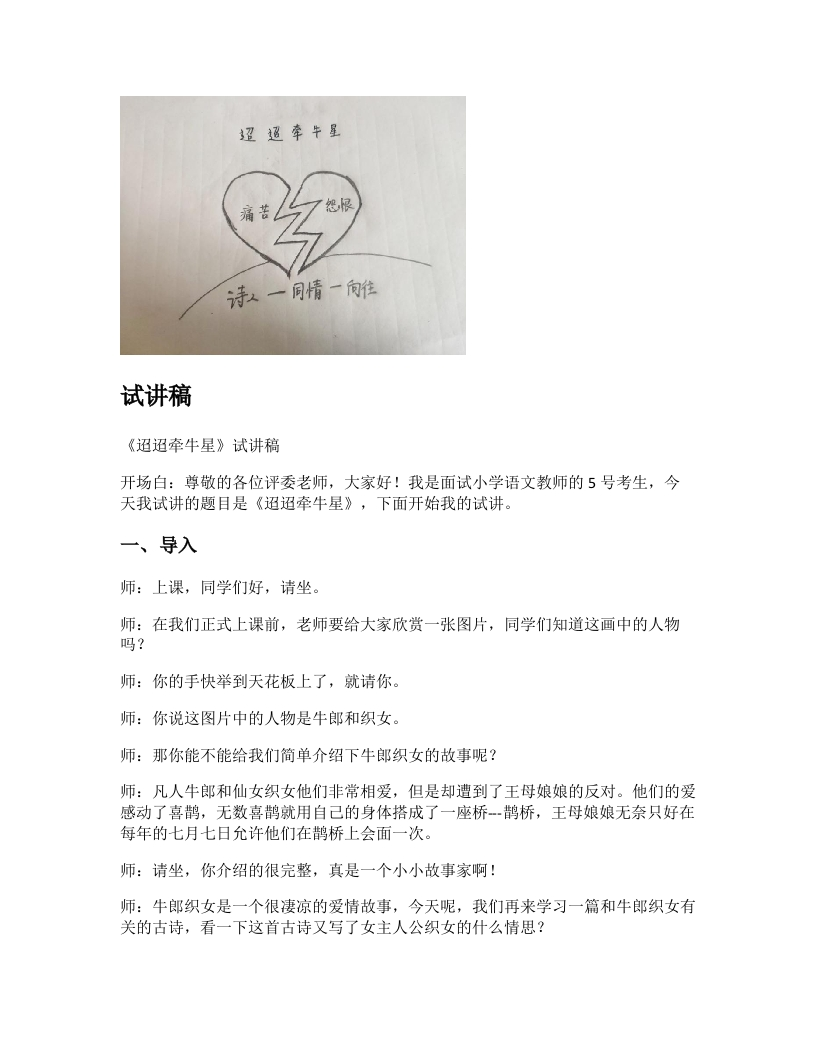 迢迢牵牛星
痛苦
怨恨
诗人一同情一向往
试讲稿
《迢迢牵牛星》试讲稿
开场白：尊敬的各位评委老师，大家好！我是面试小学语文教师的 5 号考生，今
天我试讲的题目是《迢迢牵牛星》，下面开始我的试讲。
一、导入
师：上课，同学们好，请坐。
师：在我们正式上课前，老师要给大家欣赏一张图片，同学们知道这画中的人物
吗？
师：你的手快举到天花板上了，就请你。
师：你说这图片中的人物是牛郎和织女。
师：那你能不能给我们简单介绍下牛郎织女的故事呢？
师：凡人牛郎和仙女织女他们非常相爱，但是却遭到了王母娘娘的反对。他们的爱
感动了喜鹊，无数喜鹊就用自己的身体搭成了一座桥---鹊桥，王母娘娘无奈只好在
每年的七月七日允许他们在鹊桥上会面一次。
师：请坐，你介绍的很完整，真是一个小小故事家啊！
师：牛郎织女是一个很凄凉的爱情故事，今天呢，我们再来学习一篇和牛郎织女有
关的古诗，看一下这首古诗又写了女主人公织女的什么情思？